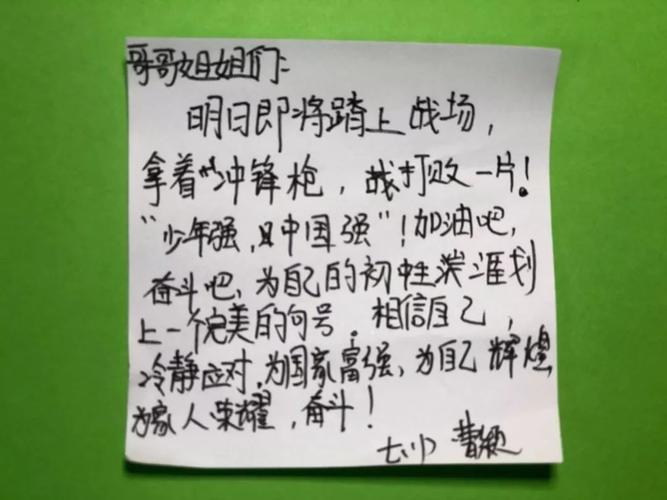 哥哥姐姐们:
明日即将踏上战场,
拿着冲锋枪,战打败一片!
"少年强,则中国强"!加油吧,
奋斗吧,为自己的初中生涯划
上一个完美的句号。相信自己,
冷静应对,为国家富强,为自己辉煌,
为家人荣耀,奋斗!